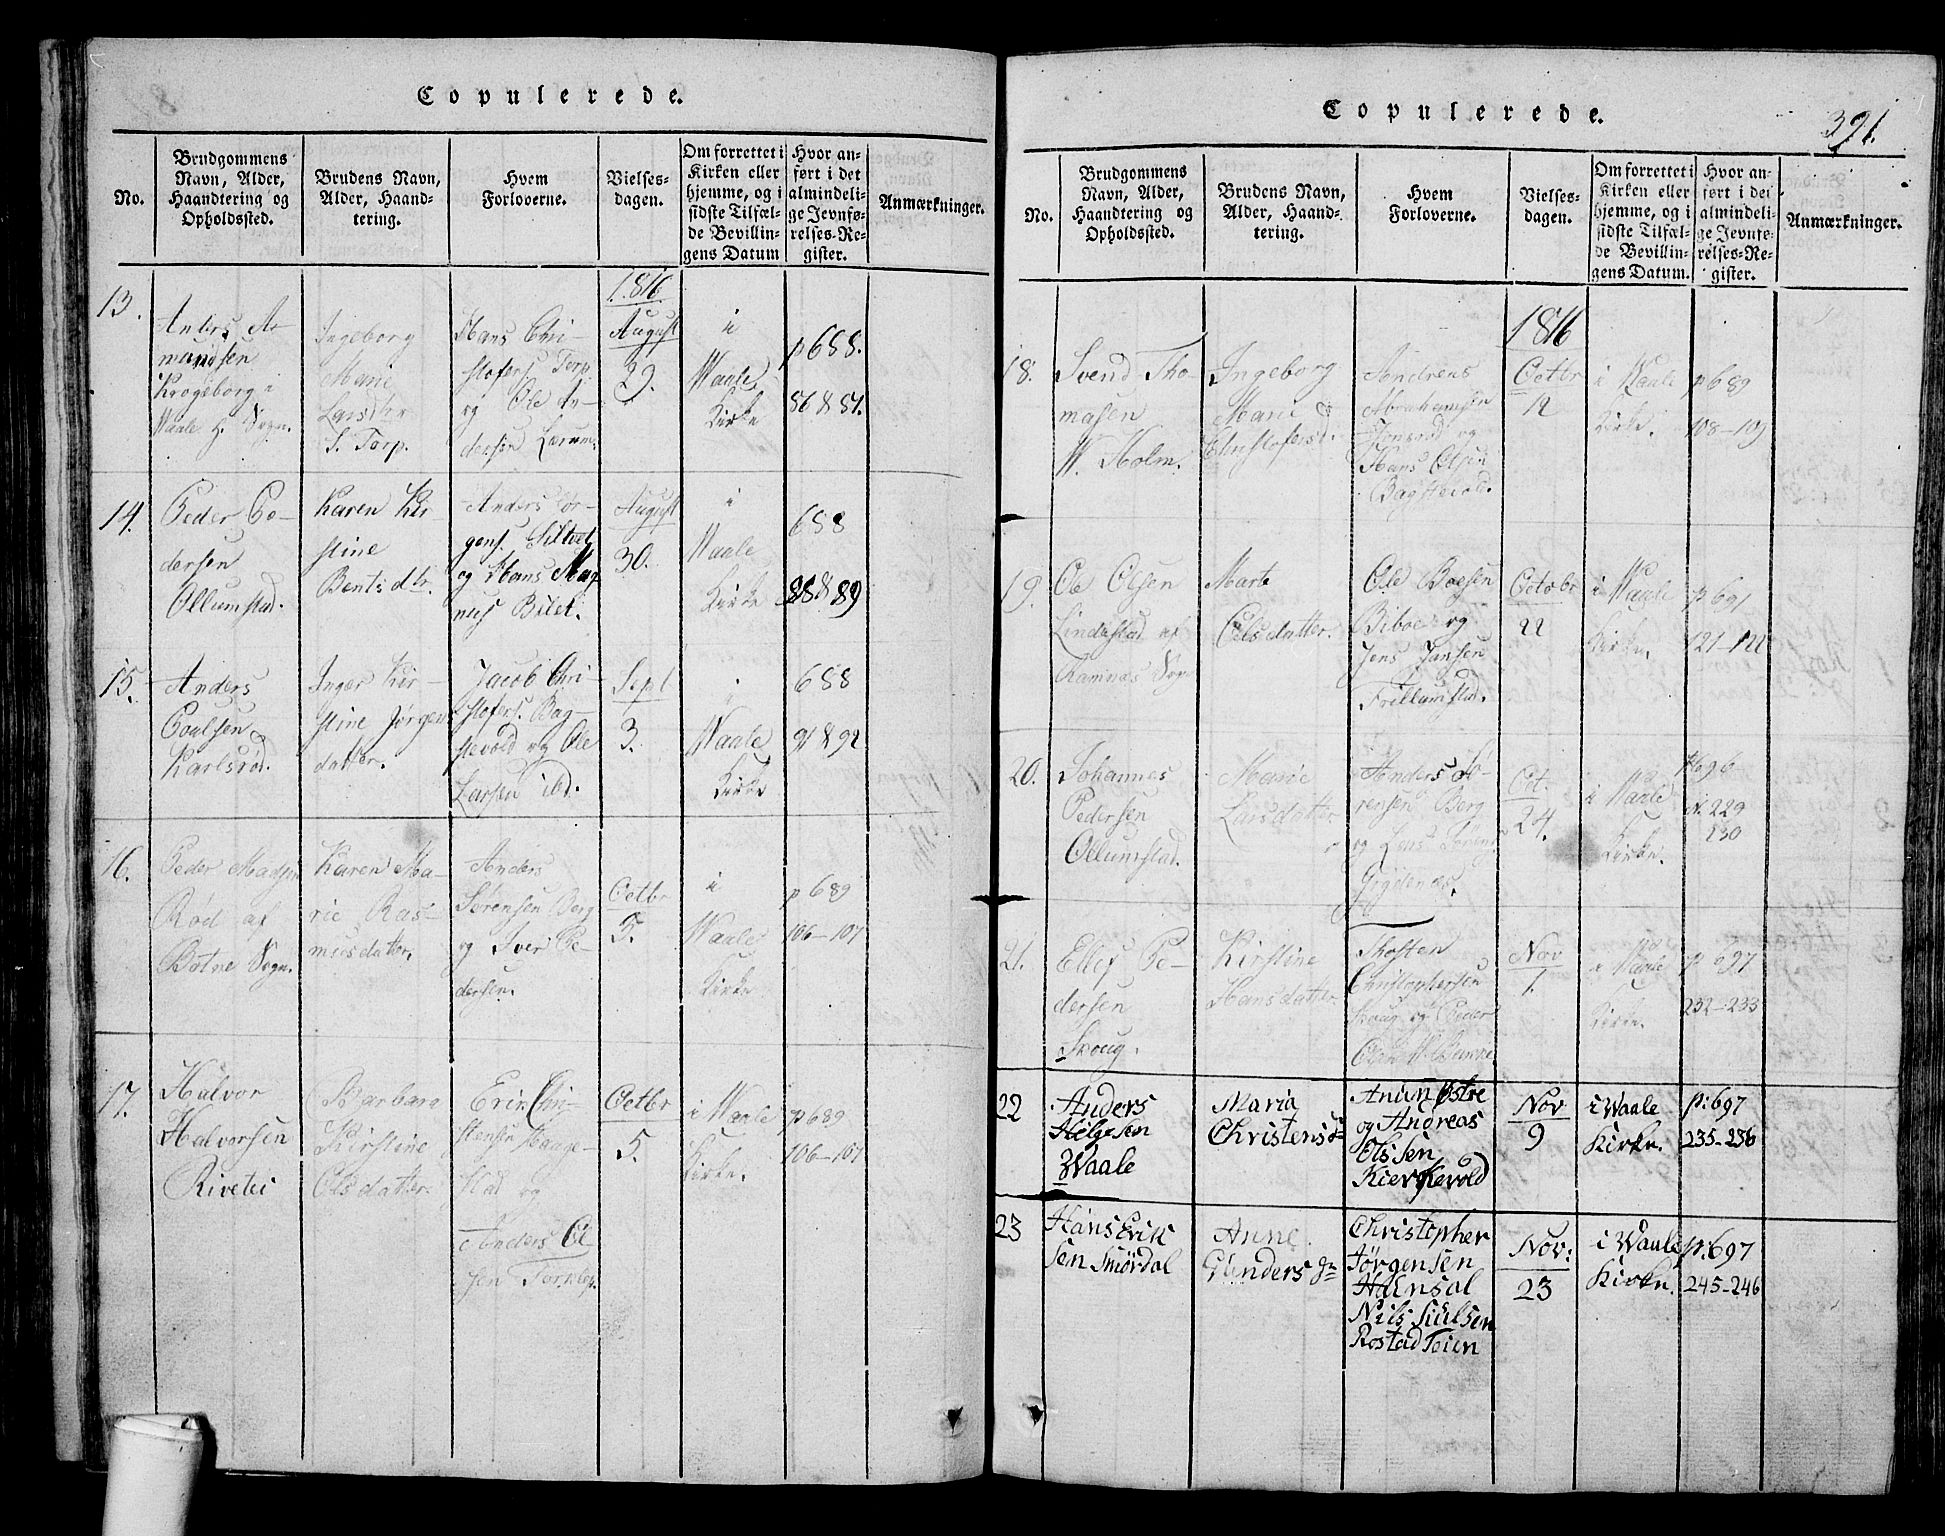 Copulerede.
No.
Brudgommens
Navn, Alder,
Haandtering og
Opholdssted.
Brudens Navn,
Alder, Haand-
tering.
Hvem
Forloverne.
Vielses-
dagen.
Om forrettet i
Kirken eller
hjemme, og i
sidste Tilfæl-
de Bevillin-
gens Datum
Hvor an-
ført i det
almindeli-
ge Jevnfø-
relses-Re-
gister.
Anmærkninger.
1816
13.
Anders A-
mundsen
Krogsborg i
Waale H. Sogn.
Ingeborg
Marie
Larsdtr
S. Torp.
Hans Chri-
stofers. Torp
og Ole An-
dersen Lerum.
August
29.
i
Waale
Kirke
p 688.
86 & 87.
14.
Peder Pe-
dersen
Ollumstad.
Karen Kir-
stine
Bentsdtr.
Anders Jør-
gens.
og Hans Mag
nus Bilet.
August
30.
i
Waale
Kirke
688
88 & 89
15.
Anders
Poulsen
Karlsrød.
Inger Kir-
stine Jørgens
datter.
Jacob Chri-
stofers. Bag-
stevold og Ole
Larsen ibd.
Sept
3.
i
Waale
Kirke
688
91 & 92
16.
Peder Madsen
Rød af
Botne Sogn.
Karen Ma-
rie Ras-
musdatter.
Anders
Sørensen Berg
og Iver Pe-
dersen.
Octbr
5.
i
Waale
Kirke
p 689
106-107
17.
Halvor
Halvorsen
Rivetei
Barbara
Kirstine
Olsdatter.
Erik Chri-
stensen Hauge-
stad og
Anders Ol
sen
Octbr
5.
i Waale
Kirke.
p 689
106-107
Copulerede.
391.
No.
Brudgommens
Navn, Alder,
Haandtering og
Opholdssted.
Brudens Navn,
Alder, Haand-
tering.
Hvem
Forloverne.
Vielses-
dagen.
Om forrettet i
Kirken eller
hjemme, og i
sidste Tilfæl-
de Bevillin-
gens Datum.
Hvor an-
ført i det
almindeli-
ge Jevnfø-
relses-Re-
gister.
Anmærkninger.
1816
18.
Svend Tho-
masen
W. Holm.
Ingeborg
Marie
Christofersd.
Andreas
Abrahamsen
Jonsrød og
Hans Olsen
Bagstevold.
Octbr
12
i Waale
Kirke.
p 689
108-109
19.
Ole Olsen
Lindestad af
Ramnæs Sogn
Marte
Olsdatter.
Ole Boesen
Biboe og
Jens Jansen
Frillumstad.
Octobr
22
i Waale
Kirke.
p 691
121-122
20.
Johannes
Pedersen
Ollumstad.
Marie
Larsdatter
Anders Sø-
rensen Berg
og
Oct.
24.
i Waale
Kirke.
p 696
N. 229
230
21.
Ellef Pe-
dersen
Skoug.
Kirstine
Hansdatter.
Thosten
Christophersen
Skoug og Peder
Nov
1.
i Waale
Kirke.
p 697
232-233
22
Anders
Helgesen
Waale
Maria
Christensd.
Anun Østre
og Andreas
Olssen
Kierkevold
Nov
9
i Waale
Kirke.
p:697
235-236
23
Hans Erik
sen Smørdal
Anne
Gunders
Christopher
Jørgensen
Haensal
Nils Juelsen
Rostad Teien
Nov:
23
i Waale
Kirke.
p:697
245-246